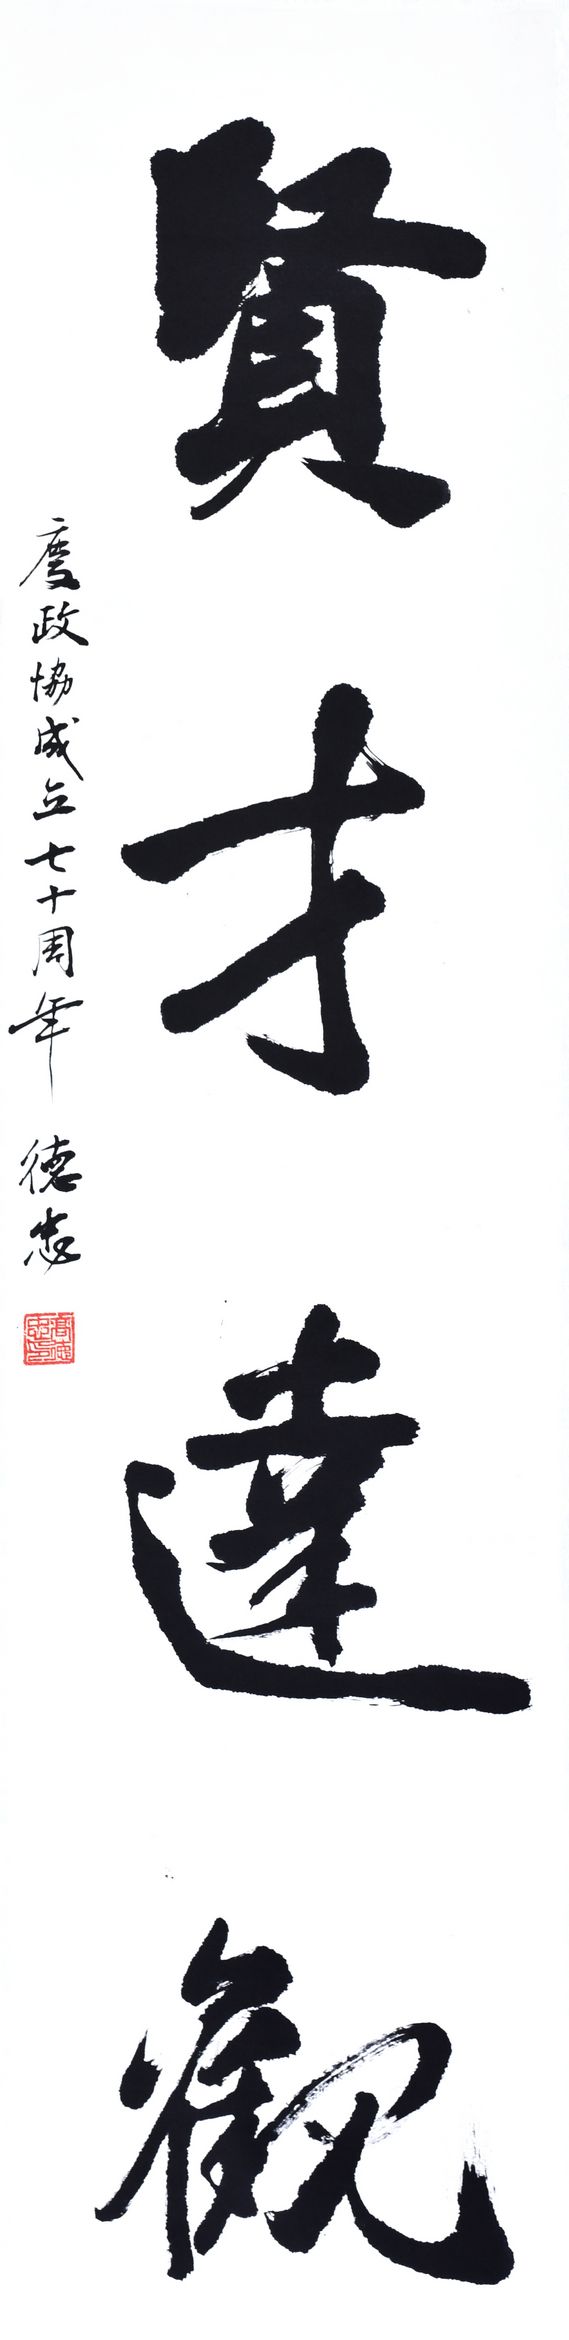 賢才達觀
慶政協成立七十周年 德忠